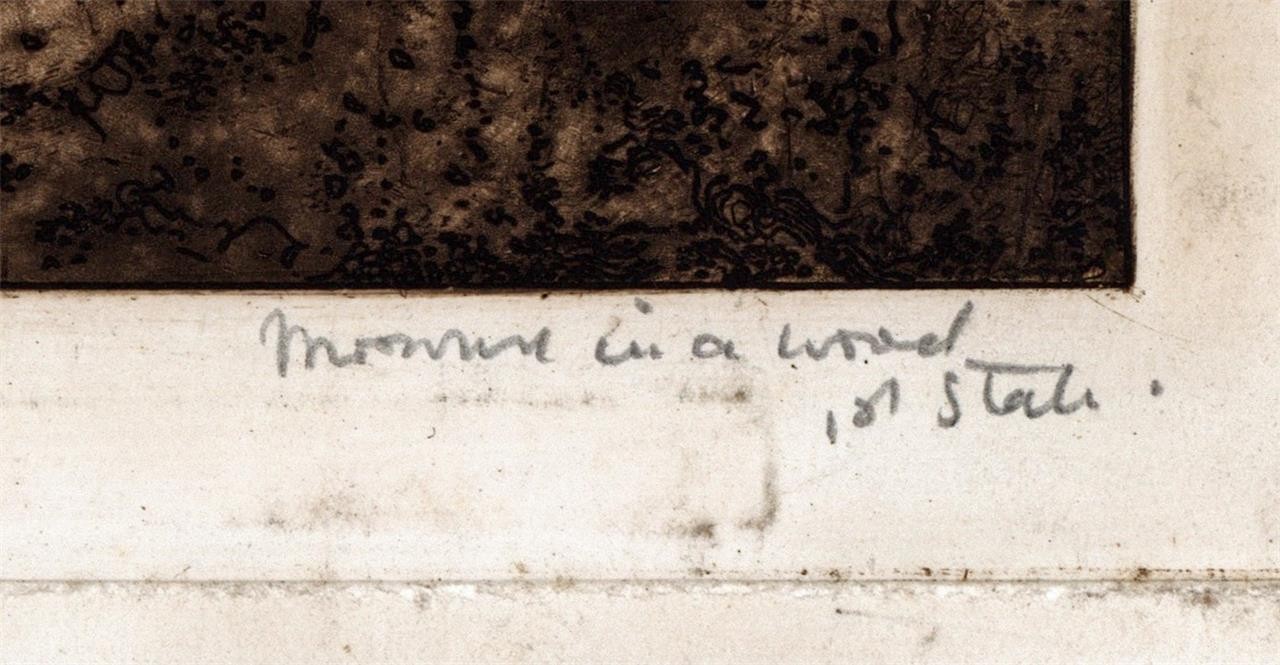 Moonrise in a wood
1st State.